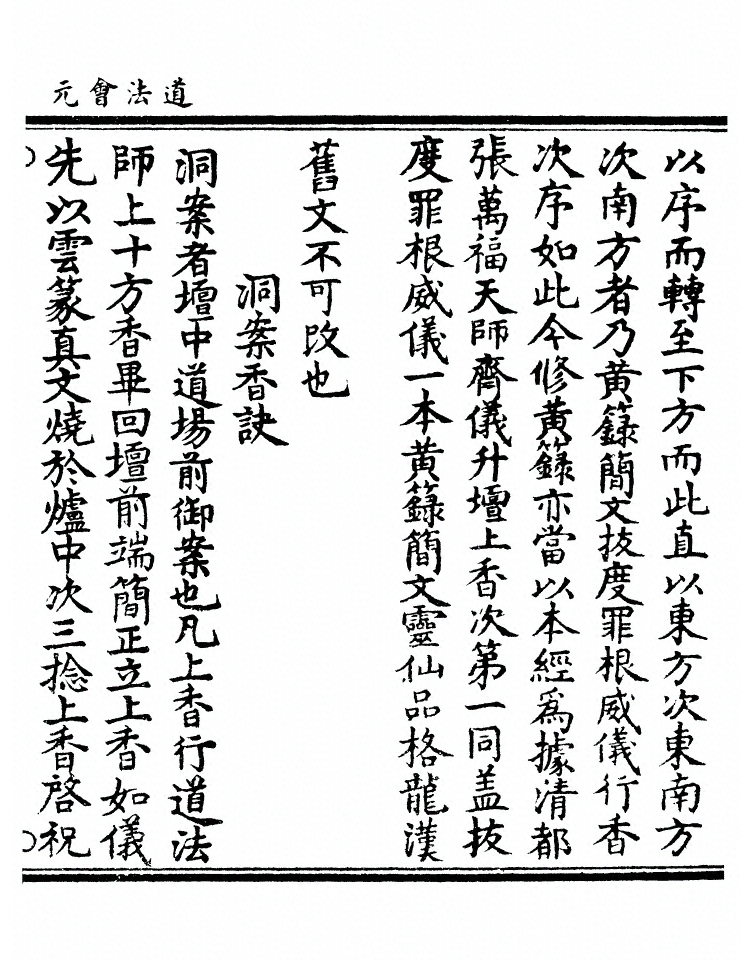 道法會元
以序而轉至下方而此直以東方次東南方
次南方者乃黃籙簡文拔度罪根威儀行香
次序如此今修黃籙亦當以本經爲據清都
張萬福天師齊儀升壇上香次第一同盖拔
度罪根威儀一本黃籙簡文靈仙品格龍漢
舊文不可改也
洞案香訣
洞案者壇中道場前御案也凡上香行道法
師上十方香畢回壇前端簡正立上香如儀
先以雲篆真文燒於爐中次三捻上香啓祝